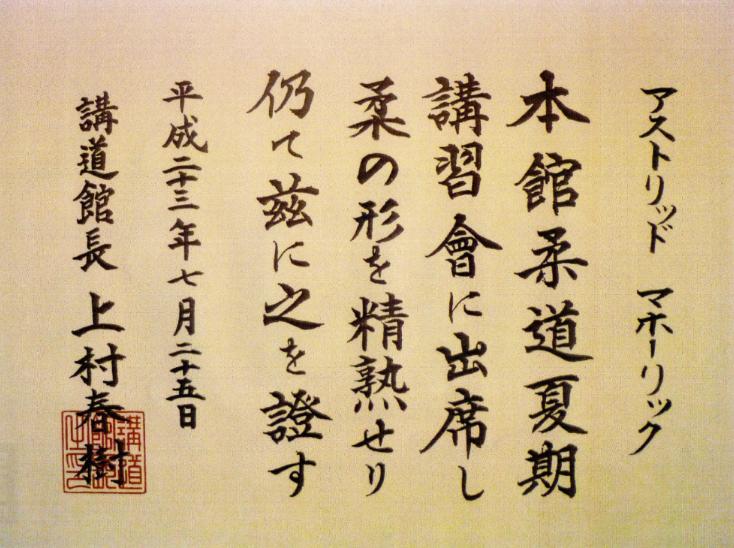 アストリッド マホーリック
本館柔道夏期
講習會に出席し
柔の形を精熟せり
仍て茲に之を證す
平成二十三年七月二十五日
講道館長 上村春樹